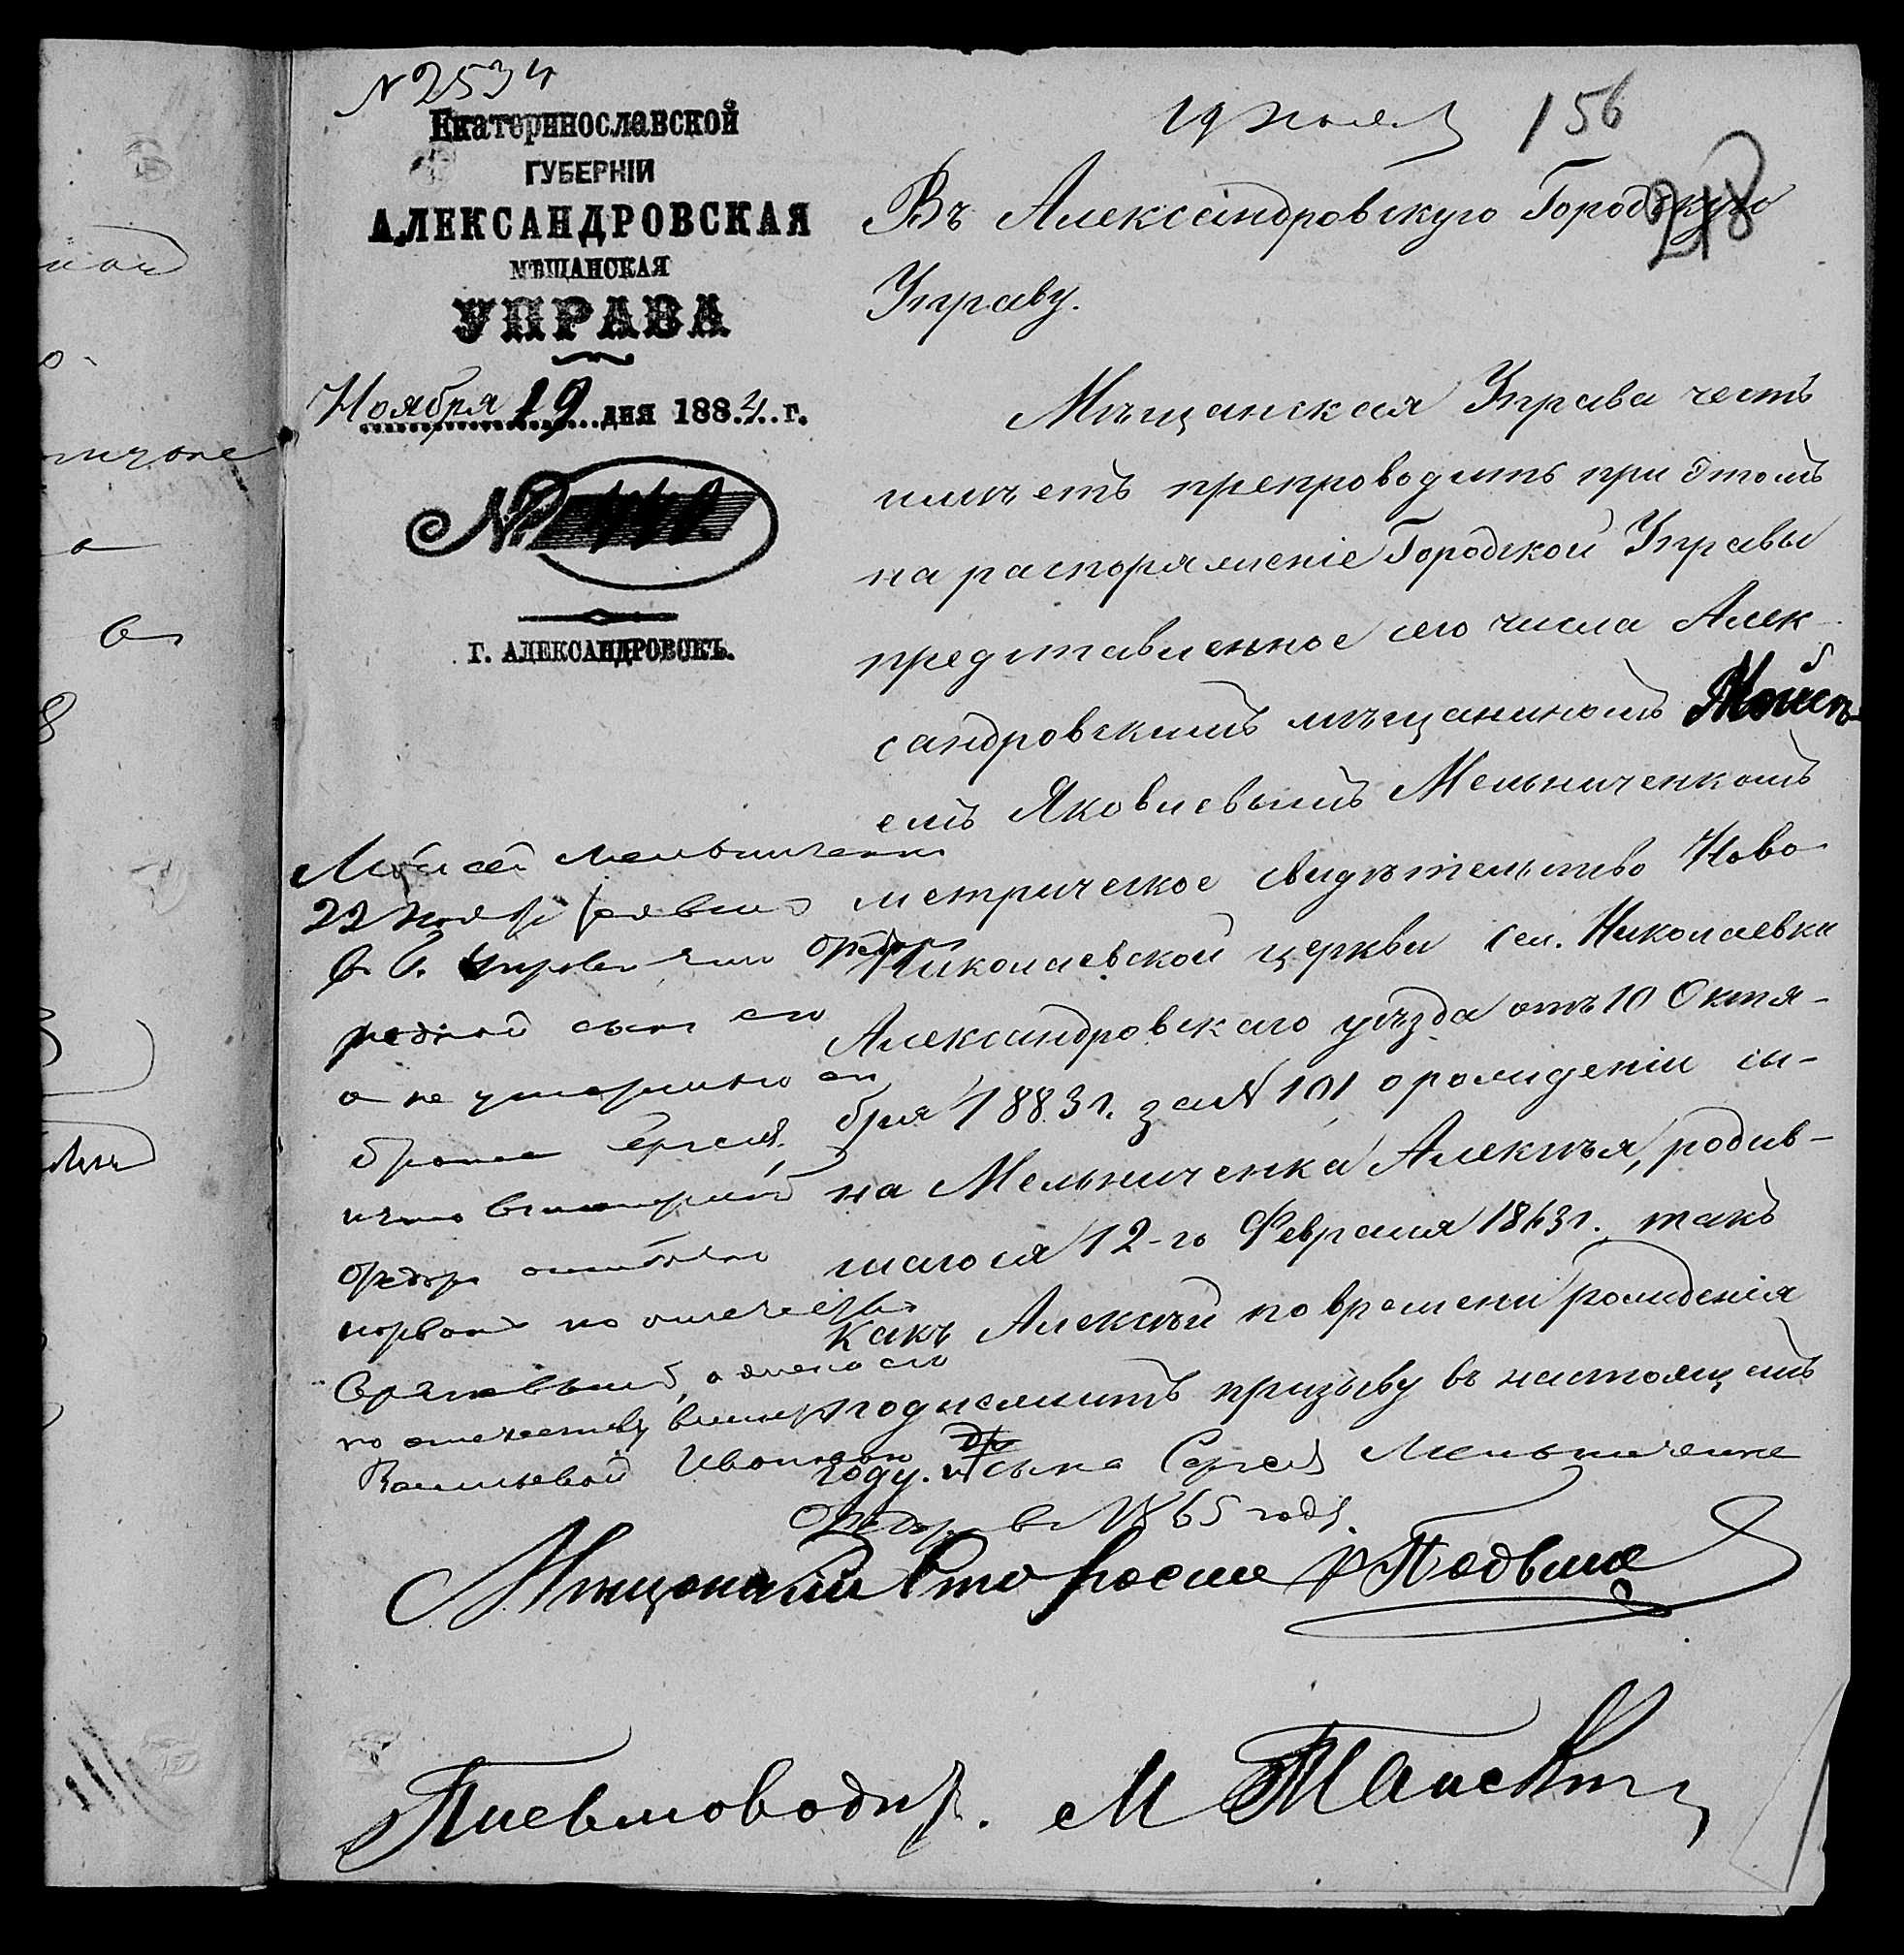 № 2534
Екатеринославской
ГУБЕРНІИ
АЛЕКСАНДРОВСКАЯ
МѢЩАНСКАЯ
УПРАВА
Ноября 19 дня 1884 г.
№
Г. АЛЕКСАНДРОВСКЪ.
19 Ноября 156
218
Въ Александровскую Городскую
Управу.
Мѣщанская Управа честь
имѣетъ препроводить при этомъ
на распоряженіе Городской Управы
представленное сего числа Алек-
сандровскимъ мѣщаниномъ Моисѣ-
емъ Яковлевымъ Мельниченкомъ
метрическое свидѣтельство Ново-
Николаевской церкви сел. Николаевки
Александровскаго уѣзда отъ 10 Октя-
бря 1883 г. за № 101 о рожденіи сы-
на Мельниченка Алексѣя, родив-
шагося 12-го Февраля 1863 г. такъ
какъ Алексѣй по времени рожденія
подлежитъ призыву въ настоящемъ
году. и сына Сергея Мельниченко
въ 1865 году.
Моисей Мельниченко
22 Ноября заявил
в Г. Управе что
родной сын его
а не умершего его
брата Сергея,
что
ошибочно
назван по отечеству
а жена его
по отечеству
Васильевой
Мѣщанскій Староста
Письмоводит. М